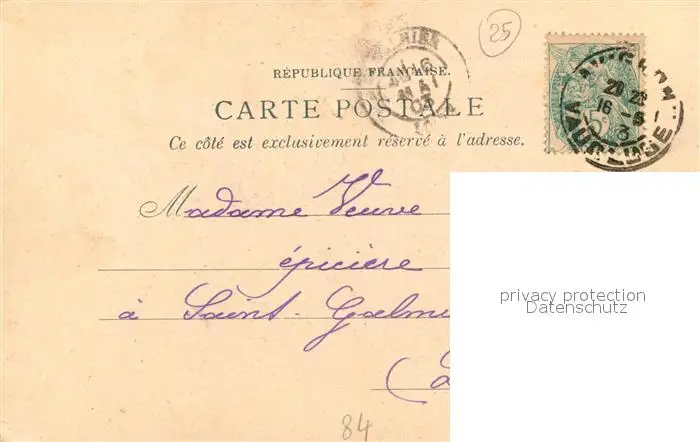 25
RÉPUBLIQUE FRANÇAISE.
CARTE POSTALE
Ce côté est exclusivement réservé à l'adresse.
16
MAI
03
16 -5
3
VAUCLUSE
5c
Madame Veuve
épicière
à Saint-Galmi
privacy protection
Datenschutz
84